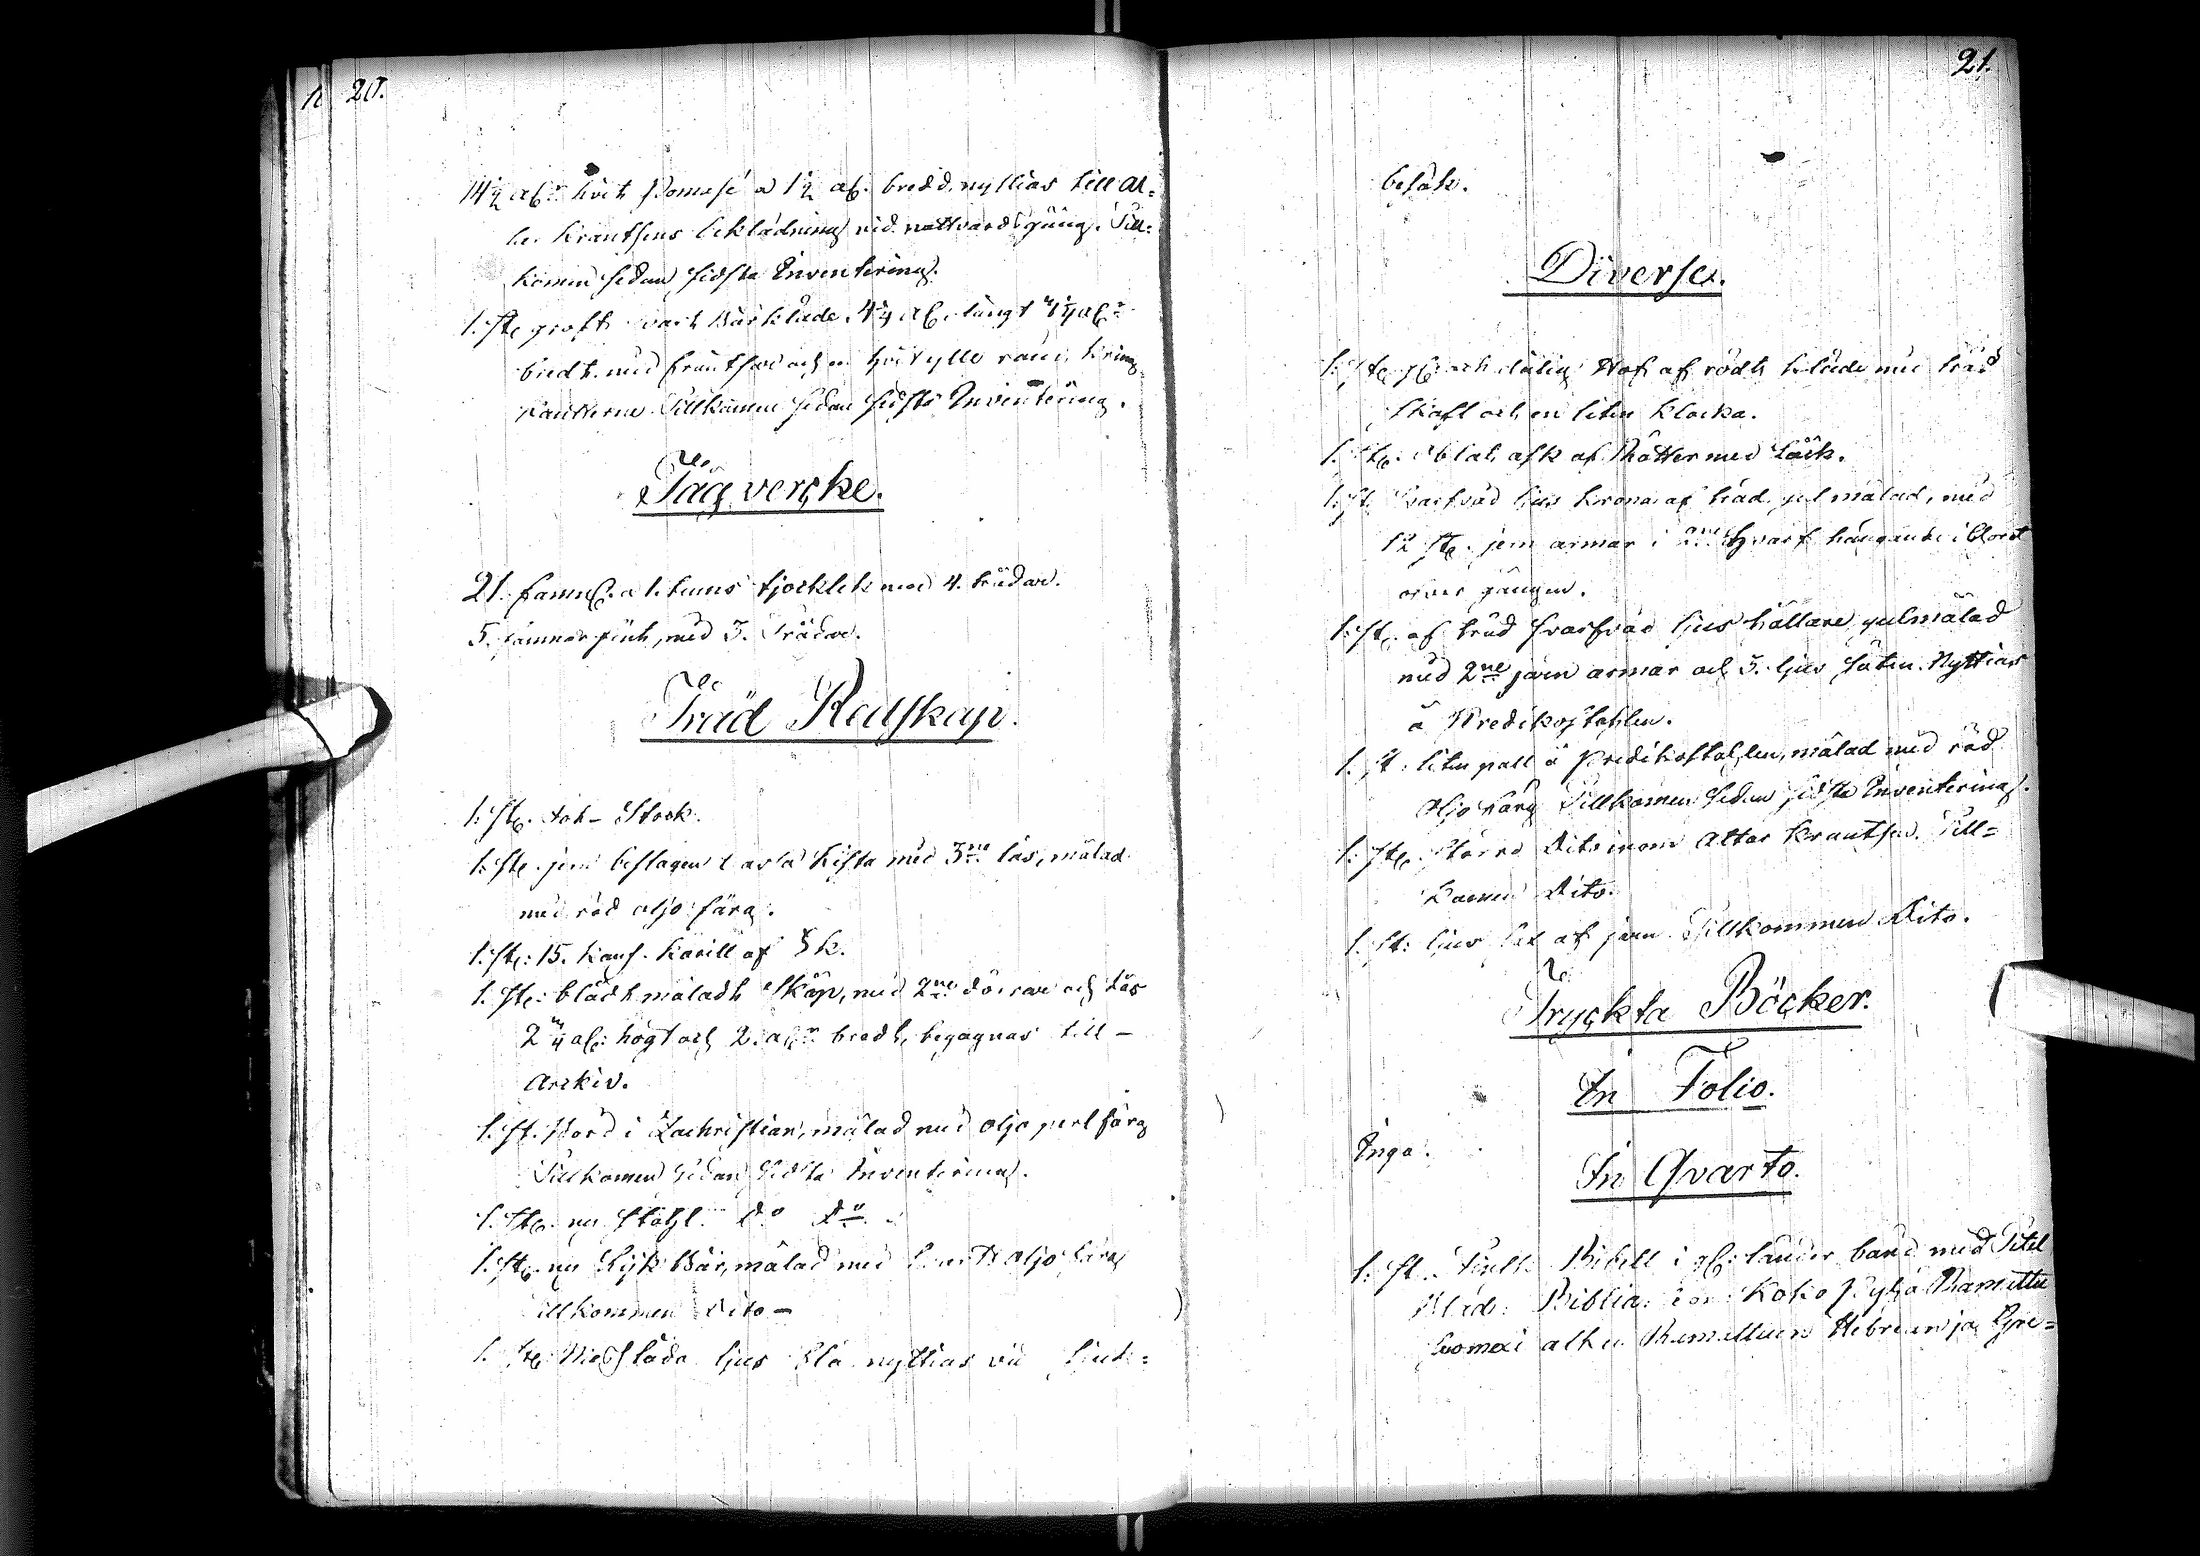 20.
14½ al:r hvit à 1½ al. bredd, nyttias till Al-
tar Krantsens beklädning vid nattvards gång. Till-
kommen sedan sidsta Inventering.
1. st. groft svart Bårkläde, al. långt al:r
bredt med frantsar och en hvit ylle rand kring
kanterna Tillkommen sedan sidsta Inventering.
Tågvercke.
21. famn. a 1. tums tjocklek med 4. trådar.
5. famnar fint, med 3. Trådar.
Träd Redskap.
1. st. Stock.
1. st. jern beslagen kista med 3ne lås, målad
med röd oljo färg.
1. st. 15. kans. af Ek.
1. st. blått måladt Skåp, med 2ne dörrar och lås
2 al: högt och 2. al:r bredt, begagnas till -
Arckiv.
1. st. Bord i Sachristian, målad med oljo perl färg
Tillkommen sedan sidsta Inventering.
1. st. ny Stohl Do Do
1. st. ny Lijk Bår, målad med svart oljo färg
tillkommen Dito -
1. st. ljus nyttias vid Sjuk-
21.
besök.
Diverse.
1. st. dålig Håf af rödt kläde med träd
skaft och en liten klocka.
1. st. Oblat ask af Rötter med Låck.
1. st. Svarfvad ljus krona af träd gul målad, med
12 st. jern armar i 2ne Hvarf hängande i Choret
öfver gången.
1. st. af träd svarfvad ljus hållare gulmålad
med 2ne jern armar och 5. ljus Nyttias
å Predikostohlen.
1. st. liten pall å Predikostohlen, målad med röd
Oljo färg Tillkommen sedan sidsta Inventering.
1. st. större Dito inom Altar Krantsen. Till-
kommen Dito.
1. st: ljus sax af jern Tillkommen Dito.
Tryckta Böcker.
In Folio.
Inga.
In Qvarto.
1. st. Finsk Bibell i band med Titel
Blad: Biblia, Se on: Koko Pyhä Ramattu
Suomexi alku Ramattuin Hebrean ja Gre-